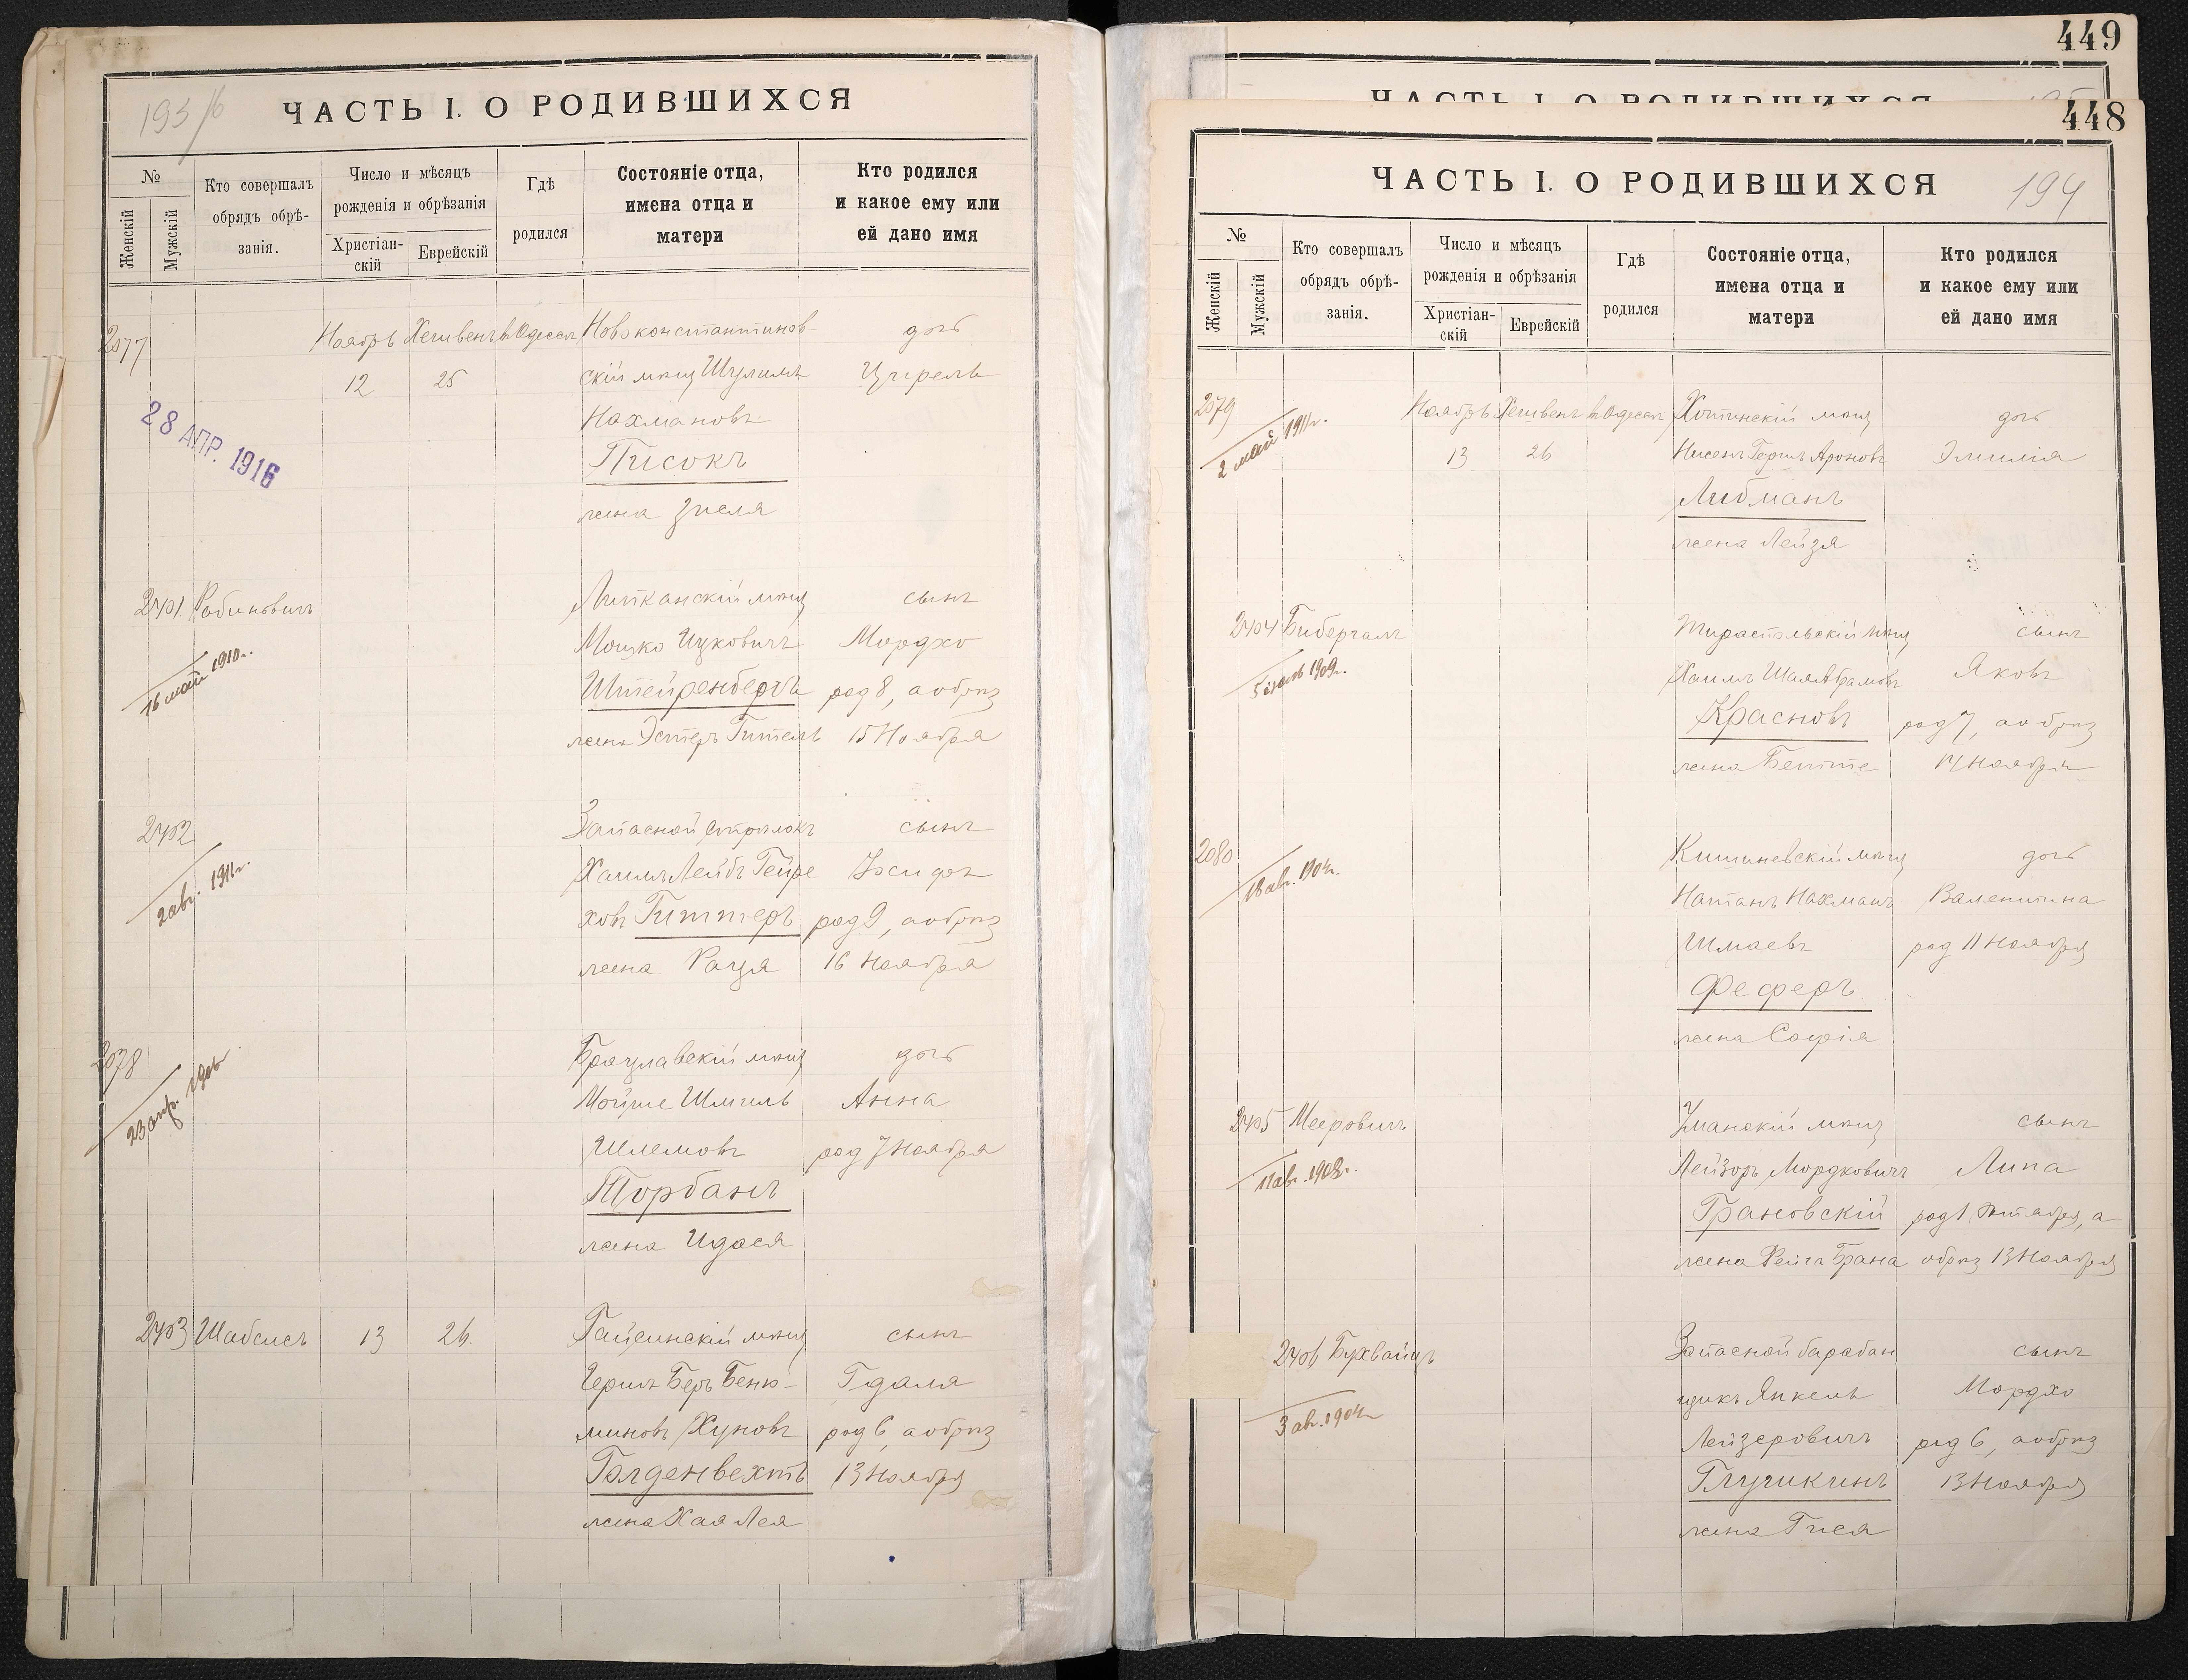 193/6
ЧАСТЬ I. О РОДИВШИХСЯ
№
Женскій
Мужскій
Кто совершалъ
обрядъ обрѣ-
занія.
Число и мѣсяцъ
рожденія и обрѣзанія
Христіан-
скій
Еврейскій
Гдѣ
родился
Состояніе отца,
имена отца и
матери
Кто родился
и какое ему или
ей дано имя
2077 Ноябрь Хешвенъ Одесса Новоконстантинов- дочь
12 25 скій мѣщ Шулимъ Цирель
Нахмановъ
28 АПР. 1916
Писокъ
жена Зисля
2401 Рабиновичъ Липканскій мѣщ сынъ
Мошко Ицковичъ Мордхо
16 май 1910г.
Штейренбергъ род 8, а обрѣз
жена Эстеръ Гитель 15 Ноября
2402 Запасной стрѣлокъ сынъ
Хаимъ Лейбъ Гейре Іосифъ
2 авг. 1911г.
ховъ Гиттеръ род 9, а обрѣз
жена Рация 16 Ноября
2078 Брацлавскій мѣщ дочь
Мойше Шмиль Анна
23 апр. 1906
Шлемовъ род 7 Ноября
Торбанъ
жена Идася
2403 Шабсисъ 13 26. Гайсинскій мѣщ сынъ
Герш Беръ Беню- Гдаля
миновъ Хуновъ род 6, а обрѣз
Голденвехтъ 13 Ноября
жена Хая Лея
449
ЧАСТЬ I. О РОДИВШИХСЯ
448
ЧАСТЬ I. О РОДИВШИХСЯ 194
№
Женскій
Мужскій
Кто совершалъ
обрядъ обрѣ-
занія.
Число и мѣсяцъ
рожденія и обрѣзанія
Христіан-
скій
Еврейскій
Гдѣ
родился
Состояніе отца,
имена отца и
матери
Кто родился
и какое ему или
ей дано имя
2079 Ноябрь Хешвенъ Одесса Хотинскій мѣщ дочь
2 май 1911г.
13 26 Нисенъ Гершъ Ароновъ Эмилія
Либманъ
жена Лейзя
2404 Бибергалъ Тираспольскій мѣщ сынъ
5 1909г.
Хаимъ Шая Абрамовъ Яковъ
Красновъ род 7, а обрѣз
жена Бетте 14 Ноября
2080 Кишиневскій мѣщ дочь
18 авг. 1904г.
Натанъ Нахманъ Валентина
Шмаевъ род 11 Ноября
Феферъ
жена Софія
2405 Мееровичъ Уманскій мѣщ сынъ
11 авг. 1908г.
Лейзоръ Мордковичъ Липа
Грановскій род 1 Октября, а
жена Фейга Брана обрѣз 13 Ноября
2406 Бухвайцъ Запасной барабан сынъ
щикъ Янкель Мордхо
3 авг. 1904г
Лейзеровичъ род 6, а обрѣз
Глушкинъ 13 Ноября
жена Гися